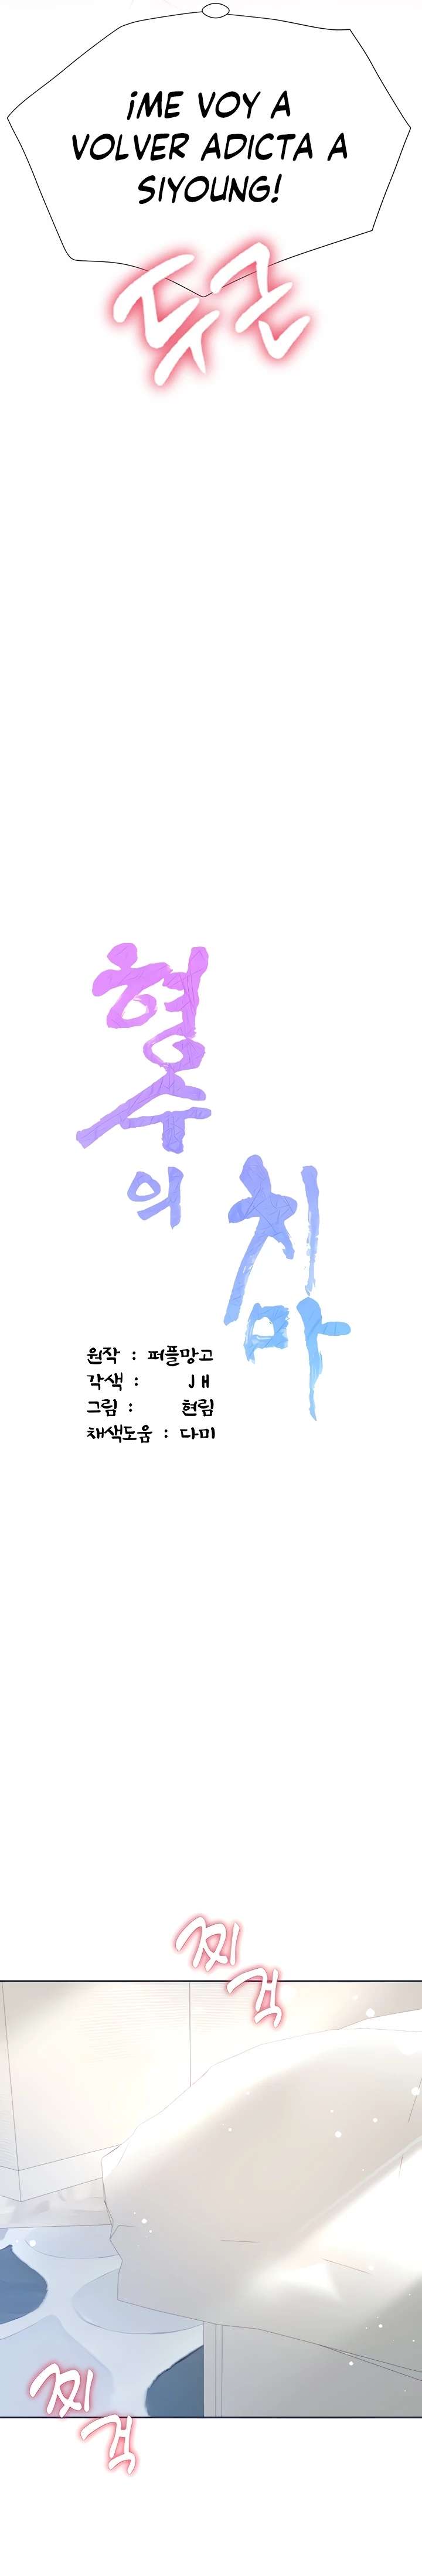 ¡ME VOY A
VOLVER ADICTA A
SIYOUNG!
두근
형수의
치마
원작 : 퍼플망고
각색 : JH
그림 : 현림
채색도움 : 다미
찌걱
찌걱